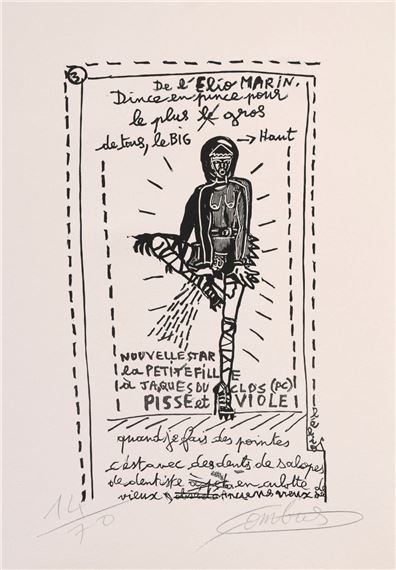 3
De l'Elio MARIN.
Dince en pince pour
le plus gros
de tous, le BIG → Haut
NOUVELLE STAR
la PETITE FILLE
à JAQUES DU CLOS (PC)
PISSE et VIOLE
quand je fais des pointes
c'est avec des dents de salopes
de dentiste en culotte de
vieux
14/70
Combas